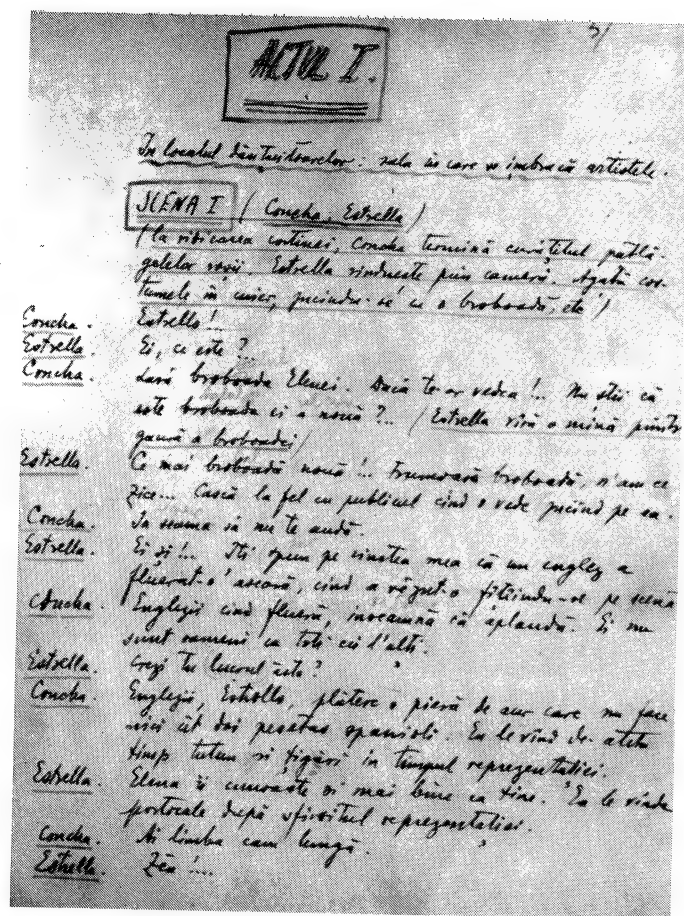 5/
ACTUL I.
In localul dănțuitoarelor: sala în care se îmbracă artistele.
SCENA I (Concha, Estrella)
(La ridicarea cortinei, Concha termină curățitul pătlă-
gelelor roșii. Estrella rînduește prin cameră. Agață cos-
tumele în cuier, jucîndu-se cu o broboadă, etc)
Concha. Estrella!..
Estrella. Ei, ce este?..
Concha. Lasă broboada Elenei. Dacă te-ar vedea!.. Nu știi că
este broboada ei a nouă?.. (Estrella vîră o mînă printr
gaură a broboadei)
Estrella. Ce mai broboadă nouă!.. Frumoasă broboadă, n'am ce
zice... Cască la fel cu publicul cînd o vede jucînd pe ea.
Concha. Ia seama să nu te audă.
Estrella. Ei și!.. Iți spun pe cinstea mea că un englez a
fluerat-o aseară, cînd a văzut-o fîțîindu-se pe scenă
Concha. Englezii cînd flueră, înseamnă că aplaudă. Ei nu
sunt oameni ca toți cei l'alți.
Estrella. Crezi tu lucrul ăsta?
Concha. Englezii, Estrella, plătesc o piesă de aur care nu face
nici cît doi pesetas spanioli. Eu le vînd de atîta
timp tutun și țigări în timpul reprezentației.
Estrella. Elena îi cunoaște și mai bine ca tine. Ea le vinde
portocale după sfîrșitul reprezentației.
Concha. Ai limba cam lungă.
Estrella. Zău!...